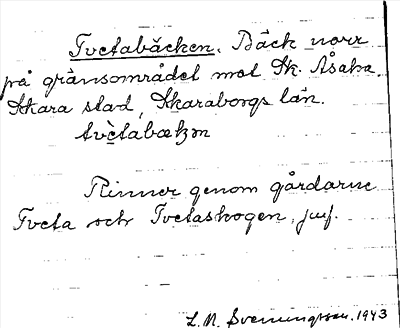 Tvetabäcken. Bäck norr
på gränsområdet mot Sk. Åsaka.
Skara stad, Skaraborgs län.
tvètabækən
Rinner genom gårdarne
Tveta och Tvetaskogen, juf.
L. N. Svenungsson. 1943